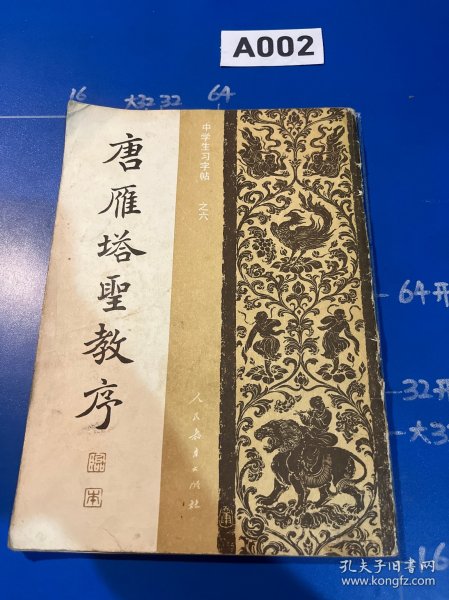 A002
16
大32
32
64
中学生习字帖 之六
唐雁塔聖教序
临本
人民教育出版社
64开
32开
大32
16
孔夫子旧书网
www.kongfz.com